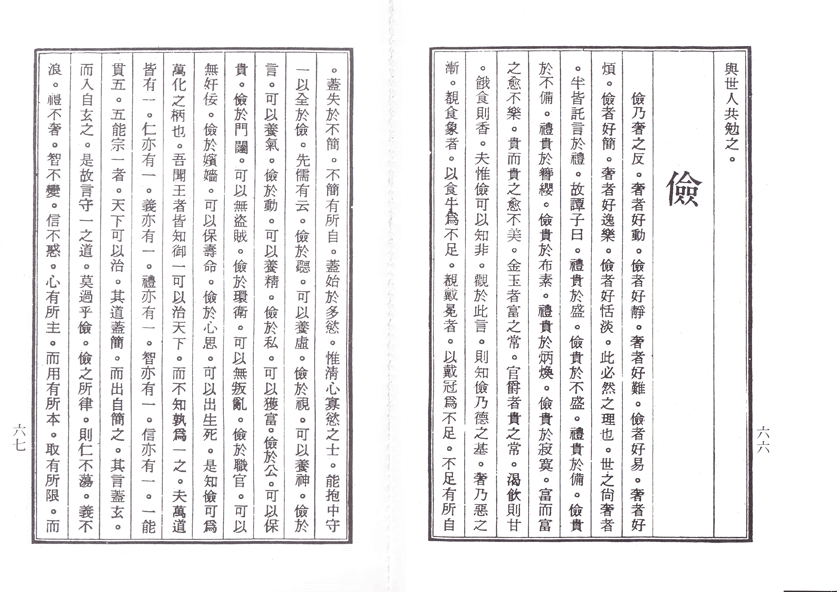 與世人共勉之。
儉
儉乃奢之反。奢者好動。儉者好靜。奢者好難。儉者好易。奢者好
煩。儉者好簡。奢者好逸樂。儉者好恬淡。此必然之理也。世之尙奢者
。半皆託言於禮。故譚子曰。禮貴於盛。儉貴於不盛。禮貴於備。儉貴
於不備。禮貴於簪纓。儉貴於布素。禮貴於炳煥。儉貴於寂寞。富而富
之愈不樂。貴而貴之愈不美。金玉者富之常。官爵者貴之常。渴飲則甘
。餓食則香。夫惟儉可以知非。觀於此言。則知儉乃德之基。奢乃惡之
漸。覩食象者。以食牛爲不足。覩戴冕者。以戴冠爲不足。不足有所自
六六
。蓋失於不簡。不簡有所自。蓋始於多慾。惟清心寡慾之士。能抱中守
一以全於儉。先儒有云。儉於聽。可以養虛。儉於視。可以養神。儉於
言。可以養氣。儉於動。可以養精。儉於私。可以獲富。儉於公。可以保
貴。儉於門闥。可以無盜賊。儉於環衛。可以無叛亂。儉於職官。可以
無奸佞。儉於嬪嬙。可以保壽命。儉於心思。可以出生死。是知儉可爲
萬化之柄也。吾聞王者皆知御一可以治天下。而不知孰爲一之。夫萬道
皆有一。仁亦有一。義亦有一。禮亦有一。智亦有一。信亦有一。一能
貫五。五能宗一者。天下可以治。其道蓋簡。而出自簡之。其言蓋玄。
而入自玄之。是故言守一之道。莫過乎儉。儉之所律。則仁不蕩。義不
浪。禮不奢。智不變。信不惑。心有所主。而用有所本。取有所限。而
六七